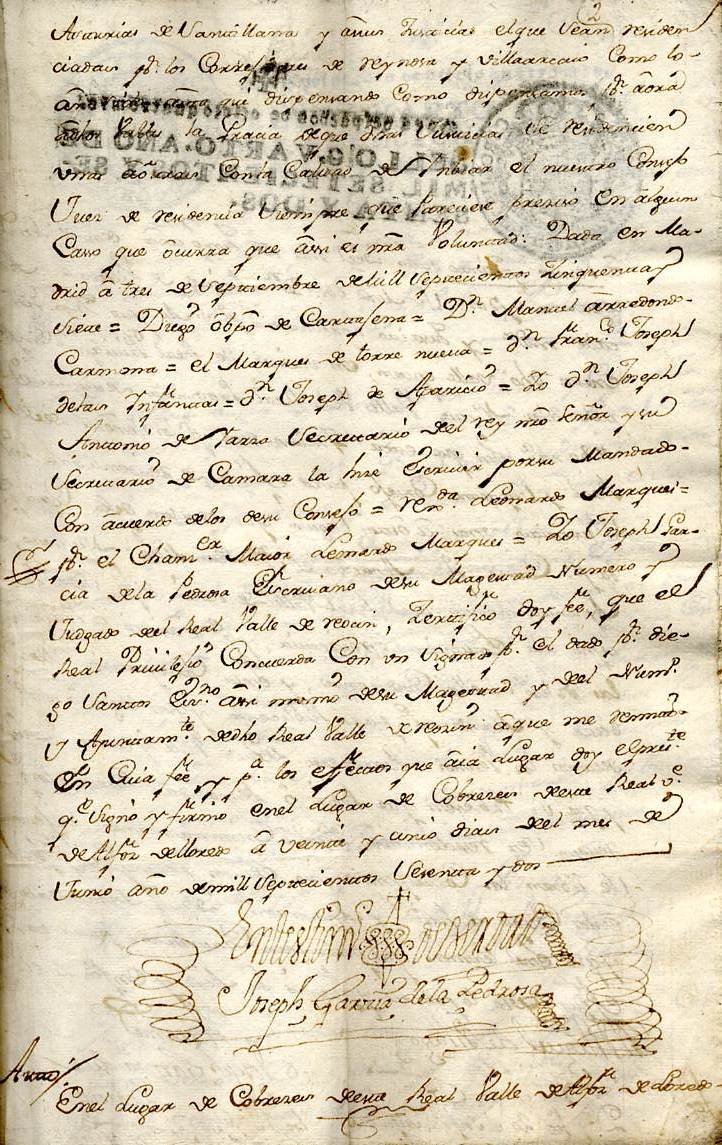 2
Asturias de Santillana y a sus Justicias el que sean residen
ciadas pr. los Corregidores de reynosa y Villarcaio como lo
an sido asta aqui dispensando como dispensamos pr. aora
a dhos Valles la Gracia de que dhas Justicias se residencien
unas a otras con la Calidad de Inbiar el nuestro Consejo
Juez de residencia siempre que pareciese preciso en algun
Casso que ocurra que assi es nra Voluntad: Dada en Ma-
drid a tres de Septiembre de mill Septecientos Zinquenta y
siete = Diego obpo de Cartaxena = Dn. Manuel arredondo
Carmona = el Marques de torre nueva = dn. franco. Joseph
de las Infantas = dn. Joseph de Aparicio = Yo dn. Joseph
Antonio de Yarza Secretario del rey nro Señor y su
Secretario de Camara la hice escrivir por su Mandado
Con acuerdo de los de su Consejo = rexda. Leonardo Marques =
pr. el Chanller. Maior Leonardo Marques = Yo Joseph Gar-
cia de la Pedrosa Escriuano de su Magestad Numero y
Juzgado del Real Valle de reocin, Zertifico doy fee, que el
Real Privilejio Concuerda Con un signado pr. el dado pr. die-
go Santos Essno. assi mismo de su Magestad y del Numo.
y Ajuntamto. de dho Real Valle de reocin a que me remito
En Cuia fee y pa. los efectos que aia Lugar doy el presте.
qe. signo y firmo en el Lugar de Cobreces de este Real Ve.
de Alfoz de lloredo a veinte y unio dias del mes de
Junio año de mill Septecientos Sesenta y dos
En testimo de verdad
Joseph Garcia de la Pedrosa
Auto
En el Lugar de Cobreces de este Real Valle de Alfoz de Loredo
SELLO QUARTO, AÑO DE
MIL SETECIENTOS Y SE-
SENTA Y DOS